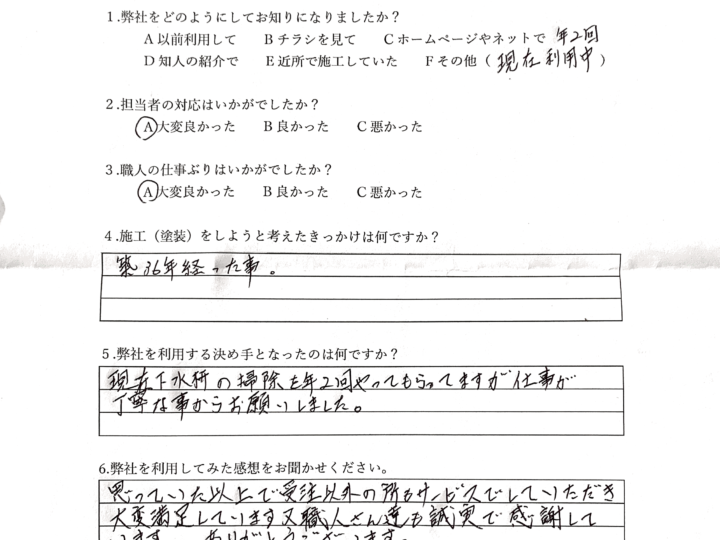 1.弊社をどのようにしてお知りになりましたか？
A 以前利用して　B チラシを見て　C ホームページやネットで 年2回
D 知人の紹介で　E 近所で施工していた　F その他（ 現在利用中 ）
2.担当者の対応はいかがでしたか？
A 大変良かった　B 良かった　C 悪かった
3.職人の仕事ぶりはいかがでしたか？
A 大変良かった　B 良かった　C 悪かった
4.施工（塗装）をしようと考えたきっかけは何ですか？
築36年経った事。
5.弊社を利用する決め手となったのは何ですか？
現在下水桝の掃除を年2回やってもらってますが仕事が
丁寧な事からお願いしました。
6.弊社を利用してみた感想をお聞かせください。
思っていた以上で受注以外の所もサービスでしていただき
大変満足しています又職人さん達も誠実で感謝して
います。ありがとうございます。